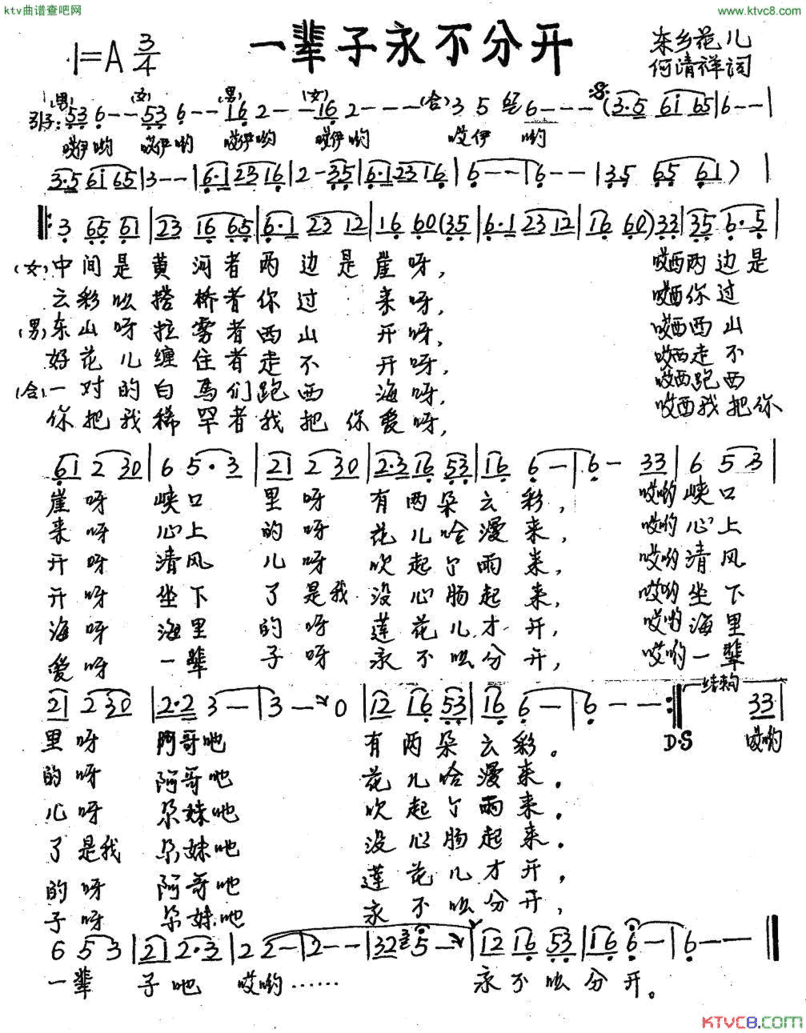 ktv曲谱查吧网
www.ktvc8.com
一辈子永不分开
1=A 3/4
东乡花儿
何清祥词
引子: (男) 53 6-- (女) 53 6-- (男) 16 2-- (女) 16 2--- (合) 3 5 6--- (3·5 61 65|6--|
哎伊哟 哎伊哟 哎伊哟 哎伊哟 哎伊 哟
3·5 61 65|3--|6·1 23 16|2-35|6·1 23 16|6--|6--|35 65 61)|
3 65 61|23 16 65|6·1 23 12|16 60 (35|6·1 23 12|16 60) 33|35 6·5|
(女)中间是黄河者两边是崖呀, 哎西两边是
云彩吆搭桥者你过来呀, 哎西你过
(男)东山呀拉雾者西山开呀, 哎西西山
好花儿缠住者走不开呀, 哎西走不
(合)一对的白馬们跑西海呀, 哎西跑西
你把我稀罕者我把你爱呀, 哎西我把你
61 2 30|6 5·3|21 2 30|2·3 16 53|16 6-|6- 33|6 5 3|
崖呀 峡口 里呀 有两朵云彩, 哎哟峡口
来呀 心上 的呀 花儿哈漫来, 哎哟心上
开呀 清风 儿呀 吹起个雨来, 哎哟清风
开呀 坐下 了是我 没心肠起来, 哎哟坐下
海呀 海里 的呀 莲花儿才开, 哎哟海里
爱呀 一辈 子呀 永不吆分开, 哎哟一辈
结构
21 2 30|2·2 3-|3- 0|12 16 53|16 6-|6--:‖ 33|
D·S
里呀 阿哥吔 有两朵云彩。 哎哟
的呀 阿哥吔 花儿哈漫来.
儿呀 尕妹吔 吹起个雨来.
了是我 尕妹吔 没心肠起来.
的呀 阿哥吔 莲花儿才开,
子呀 尕妹吔 永不吆分开,
6 5 3|21 2·3|2 2-|2--|32 5-|12 16 53|16 6-|6---‖
一辈 子吔 哎哟…… 永不吆分开。
KTVC8.COM